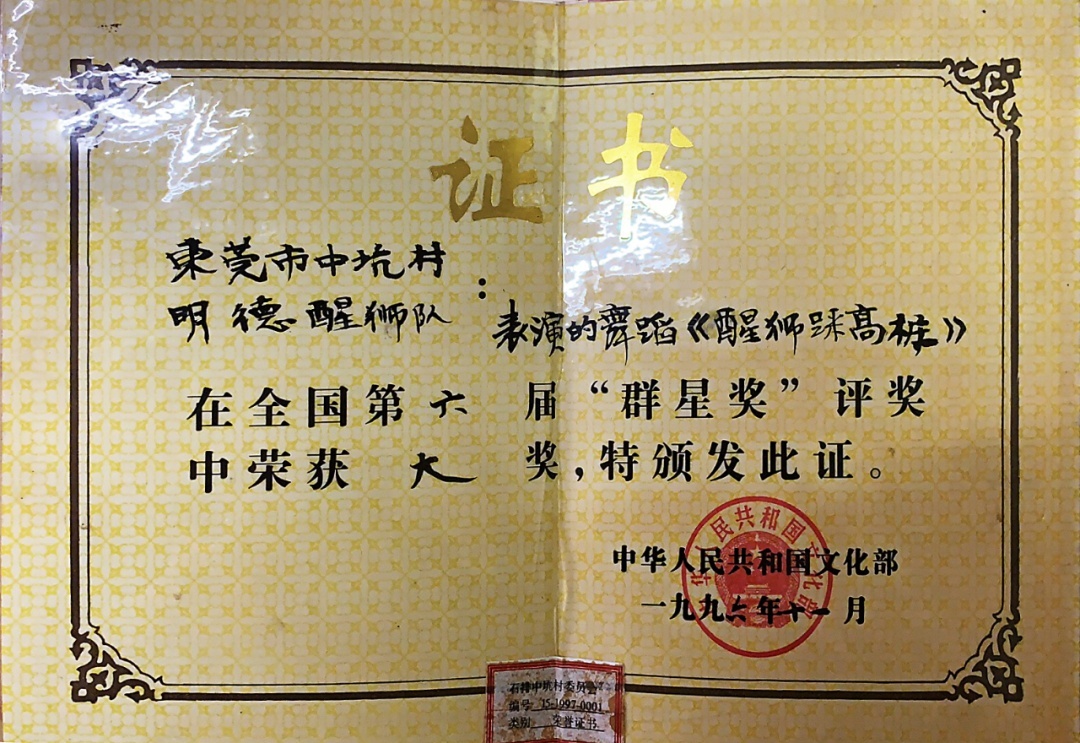 证书
東莞市中坑村
明德醒狮队：
表演的舞蹈《醒狮踩高桩》
在全国第六届“群星奖”评奖
中荣获大奖，特颁发此证。
中华人民共和国文化部
一九九六年十一月
中华人民共和国文化部
石排中坑村委员会
编号 J5-1997-0001
类别 荣誉证书